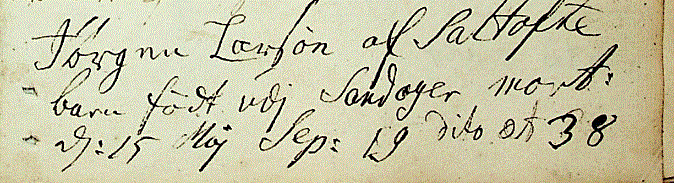 Jørgen Larsøn af Saltofte
barn født udj Sandager mort:
d: 15 Maj Sep: 19 dito æt 38